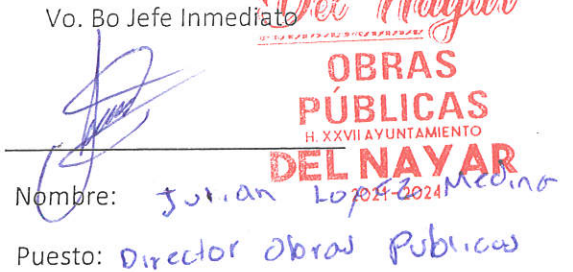 Vo. Bo Jefe Inmediato
Del Nayar
OBRAS
PÚBLICAS
H. XXVII AYUNTAMIENTO
DEL NAYAR
2021-2024
Nombre: Julian Lopez Medina
Puesto: Director Obras Publicas